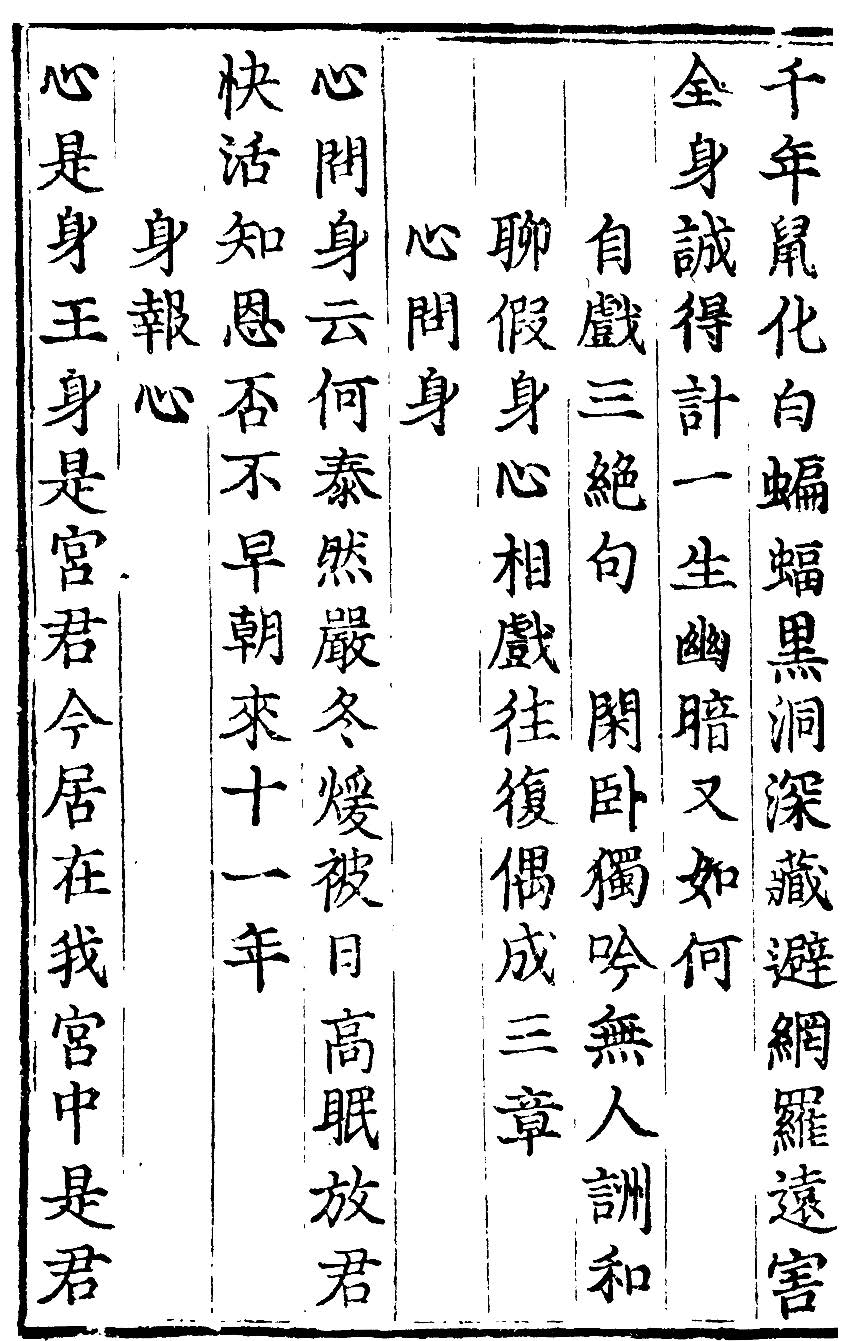 千年鼠化白蝙蝠黒洞深藏避網羅遠害
全身誠得計一生幽暗又如何
自戲三絶句　閑卧獨吟無人詶和
聊假身心相戲往復偶成三章
心問身
心問身云何泰然嚴冬煖被日高眠放君
快活知恩否不早朝來十一年
身報心
心是身王身是宮君今居在我宮中是君